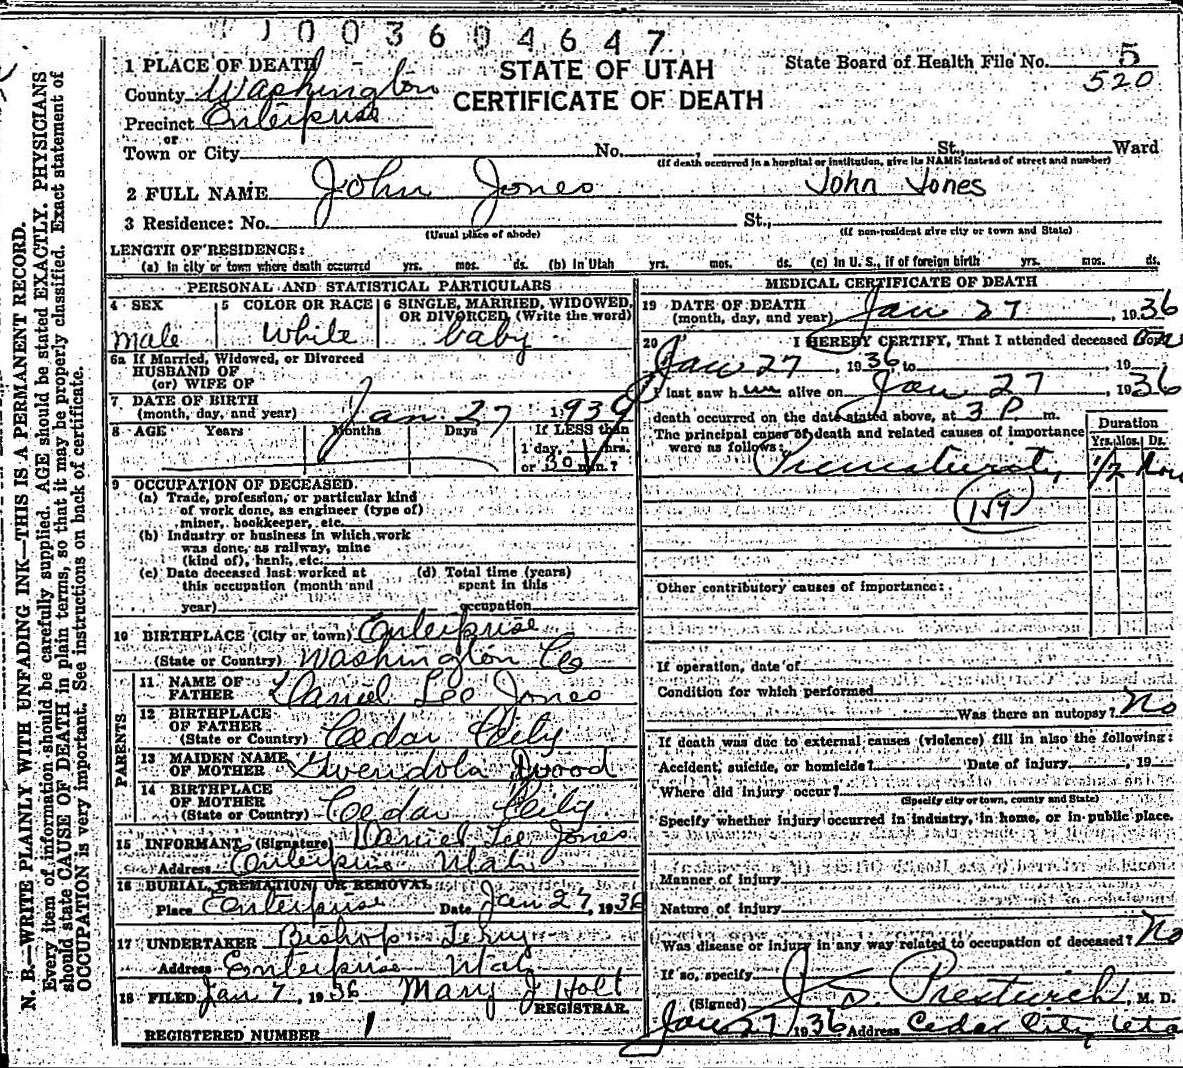 1003604647
1 PLACE OF DEATH
STATE OF UTAH
CERTIFICATE OF DEATH
State Board of Health File No. 5
520
County Washington
Precinct Enterprise
or
Town or City No. , St., Ward
(If death occurred in a hospital or institution, give its NAME instead of street and number)
2 FULL NAME John Jones John Jones
3 Residence: No. St.,
(Usual place of abode) (If non-resident give city or town and State)
LENGTH OF RESIDENCE:
(a) In city or town where death occurred yrs. mos. ds. (b) In Utah yrs. mos. ds. (c) In U. S., if of foreign birth yrs. mos. ds.
PERSONAL AND STATISTICAL PARTICULARS
4 SEX 5 COLOR OR RACE 6 SINGLE, MARRIED, WIDOWED,
OR DIVORCED (Write the word)
male White baby
6a If Married, Widowed, or Divorced
HUSBAND OF
(or) WIFE OF
7 DATE OF BIRTH
(month, day, and year) Jan. 27 1936
8 AGE Years Months Days If LESS than
1 day, hrs.
or 30 min.?
9 OCCUPATION OF DECEASED
(a) Trade, profession, or particular kind
of work done, as engineer (type of)
miner, bookkeeper, etc.
(b) Industry or business in which work
was done, as railway, mine
(kind of), bank, etc.
(c) Date deceased last worked at (d) Total time (years)
this occupation (month and spent in this
year) occupation
10 BIRTHPLACE (City or town) Enterprise
(State or Country) Washington Co
PARENTS
11 NAME OF
FATHER Daniel Lee Jones
12 BIRTHPLACE
OF FATHER
(State or Country) Cedar City
13 MAIDEN NAME
OF MOTHER Gwendola Wood
14 BIRTHPLACE
OF MOTHER
(State or Country) Cedar City
15 INFORMANT (Signature) Daniel Lee Jones
Address Enterprise Utah
16 BURIAL, CREMATION, OR REMOVAL
Place Enterprise Date Jan 27, 1936
17 UNDERTAKER Bishop Terry
Address Enterprise Utah
18 FILED Jan 7, 1936 Mary J Holt
REGISTRAR.
REGISTERED NUMBER 1
MEDICAL CERTIFICATE OF DEATH
19 DATE OF DEATH
(month, day, and year) Jan 27, 1936
20 I HEREBY CERTIFY, That I attended deceased on
Jan 27, 1936, to , 19
I last saw h im alive on Jan 27, 1936
death occurred on the date stated above, at 3 P m.
The principal cause of death and related causes of importance
were as follows:
Duration
Yrs. Mos. Ds.
Prematurity 1/2 hour
159
Other contributory causes of importance:
If operation, date of
Condition for which performed
Was there an autopsy? No
If death was due to external causes (violence) fill in also the following:
Accident, suicide, or homicide? Date of injury , 19
Where did injury occur?
(Specify city or town, county and State)
Specify whether injury occurred in industry, in home, or in public place.
Manner of injury
Nature of injury
Was disease or injury in any way related to occupation of deceased? No
If so, specify
(Signed) J. S. Prestwich, M. D.
Jan 27 1936 Address Cedar City Uta
N. B.—WRITE PLAINLY WITH UNFADING INK—THIS IS A PERMANENT RECORD.
Every item of information should be carefully supplied. AGE should be stated EXACTLY. PHYSICIANS
should state CAUSE OF DEATH in plain terms, so that it may be properly classified. Exact statement of
OCCUPATION is very important. See instructions on back of certificate.